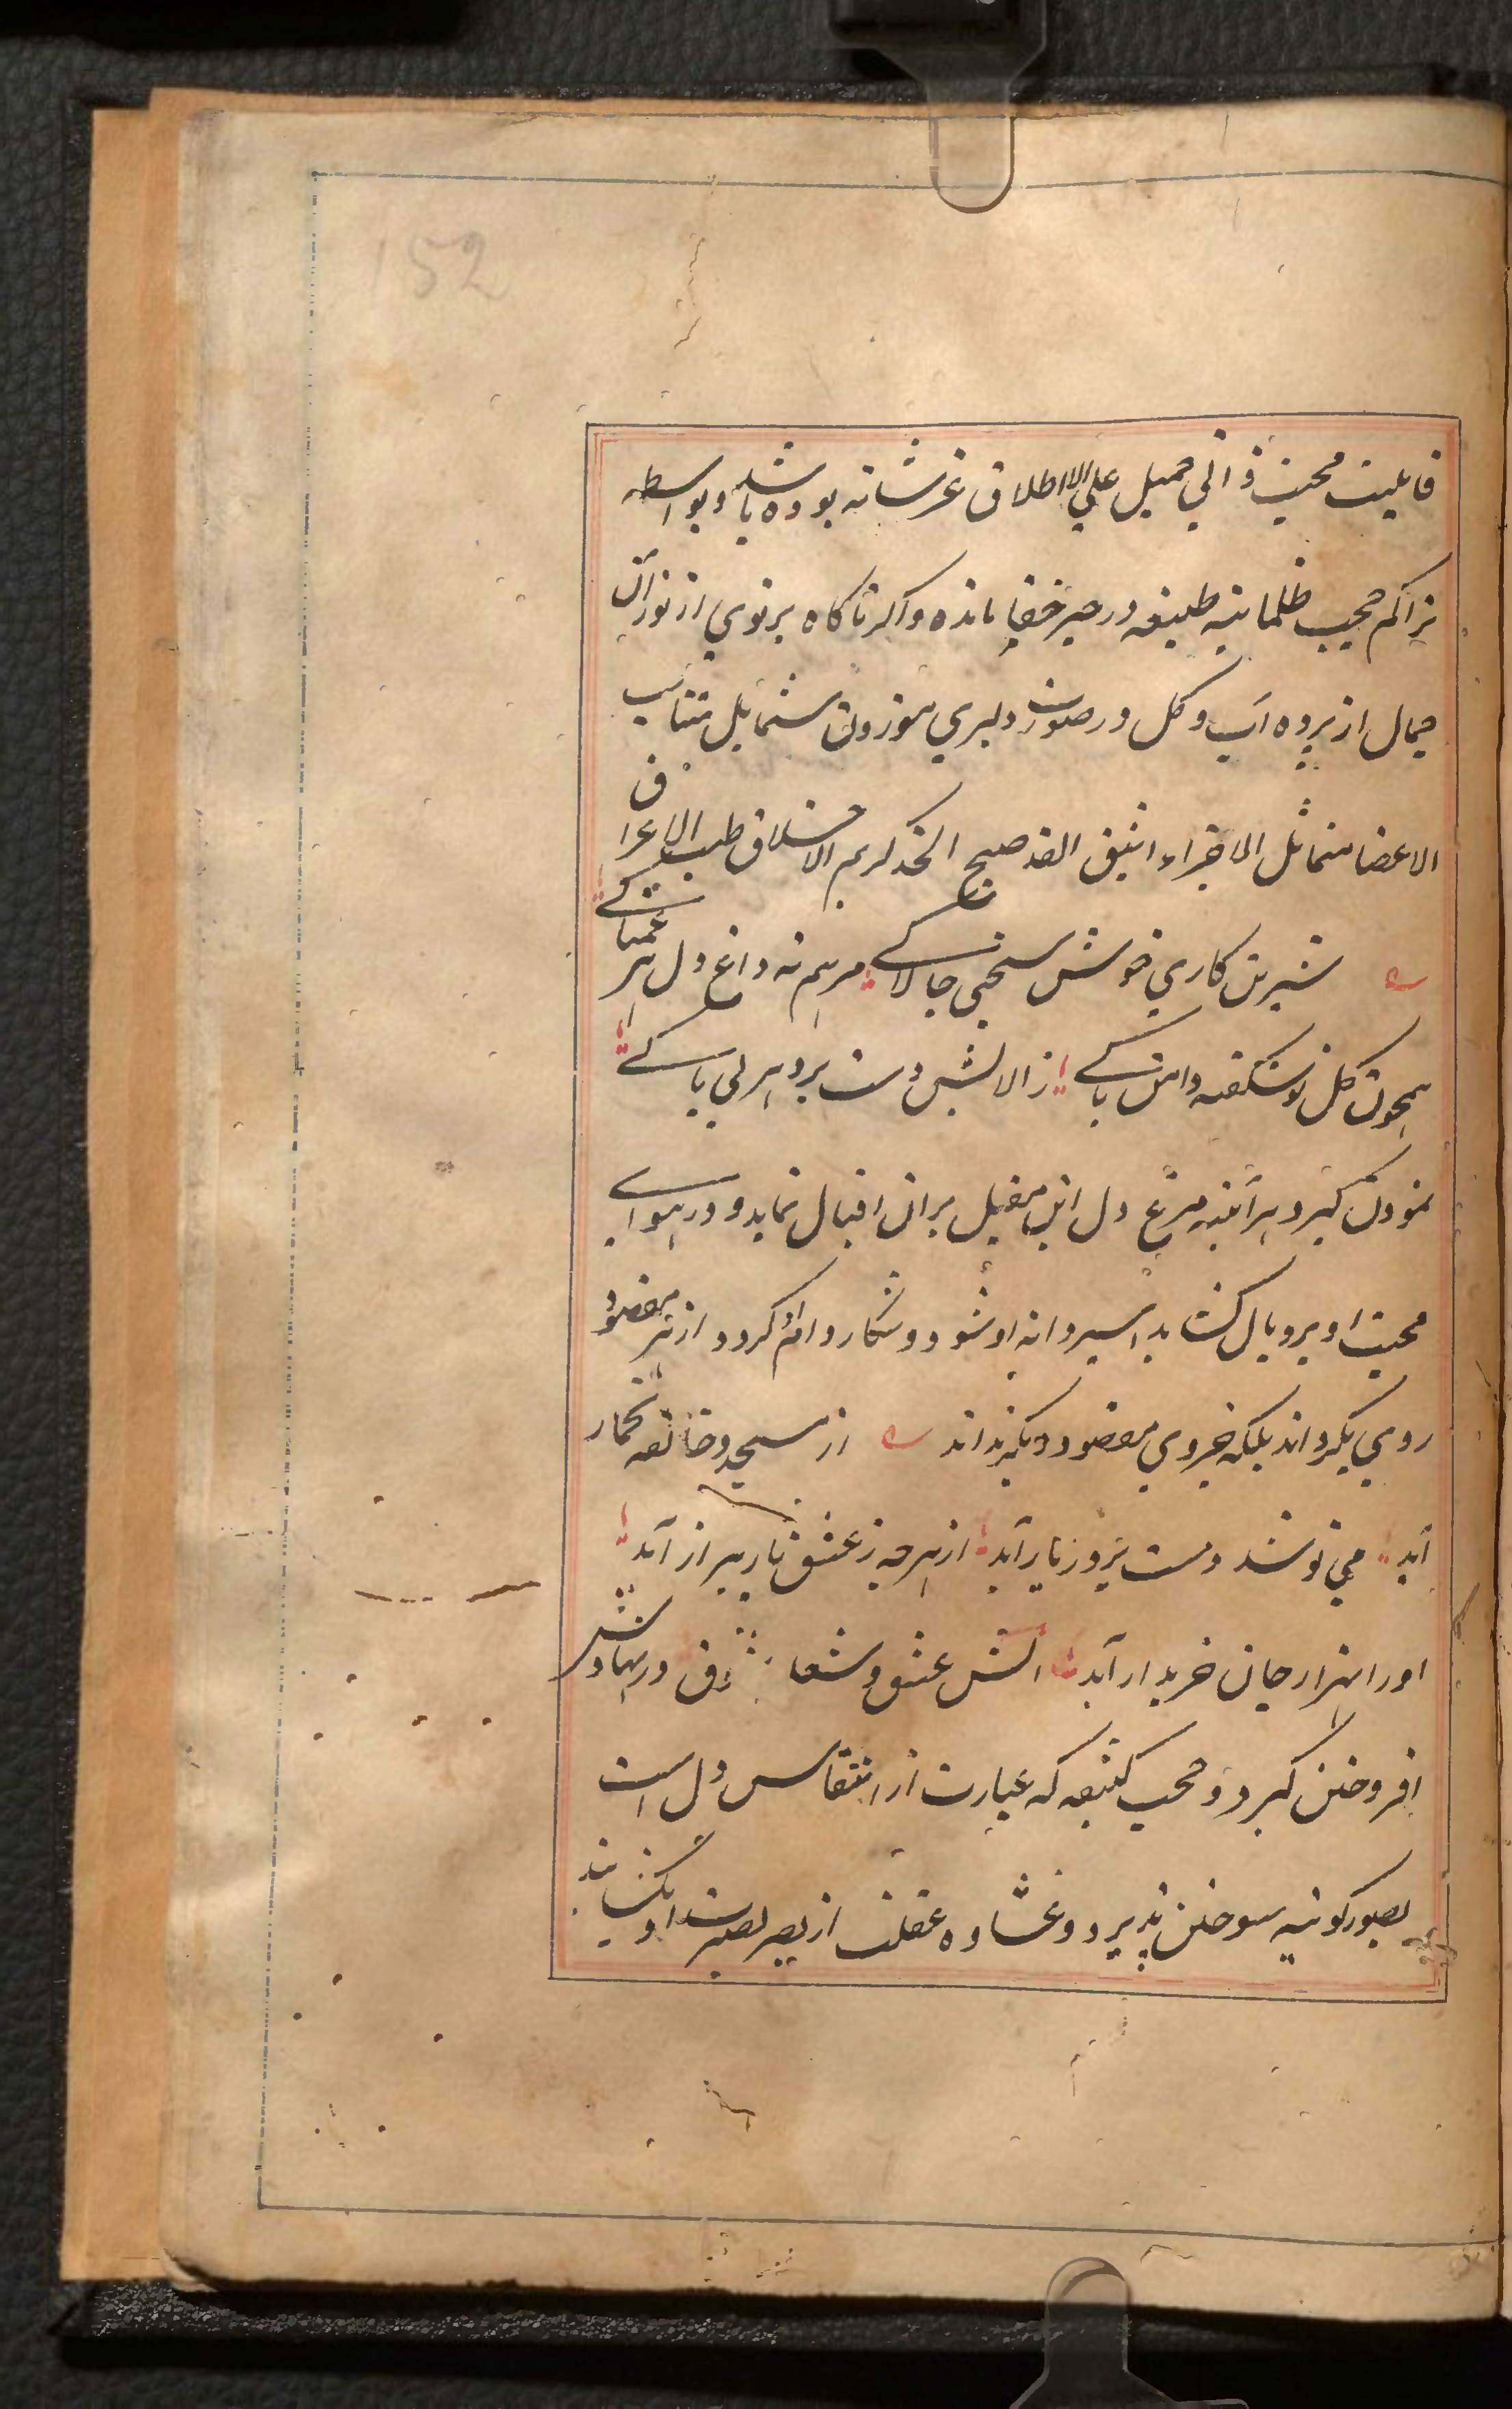 152
قابلیت محبت ذاتی جمیل علی الاطلاق عز شانه بوده باشد و بواسطه
تراکم حجب ظلمانیه طبیعه در حیز خفا مانده و اکر ناکاه پرتوی از نور آن
جمال از پرده آب و کل در صورت دلبری موزون شمایل متناسب
الاعضا متماثل الاجزاء انیق القد صبیح الخد کریم الاخلاق طیب الاعراق
شیرین کاری خوش سخنی چالاکے مرهم نه داغ دل هر غمناکے
همچون کل نوشکفته دامن پاکے از الایش دست برد هر بی باکے
نمودن کیرد هر آئینه مرغ دل این مقبل بران اقبال نماید و در هوای
محبت او پر و بال کشاید اسیر دانه او شود و شکار دام او کردد از هر مقصود
روی بکرداند بلکه جز وی مقصود دیکر نداند از مسجد و خانقه بخمار
آید می نوشد و مست بر در یار آید از هر چه نه عشق یار بیزار آید
او را هزار جان خریدار آید اتش عشق و شعله شوق در نهادش
افروختن کیرد و حجب کثیفه که عبارت از انتقاس دل است
بصور کونیه سوختن پذیرد و غشاوه غفلت از بصر بصیرت او بکشایند